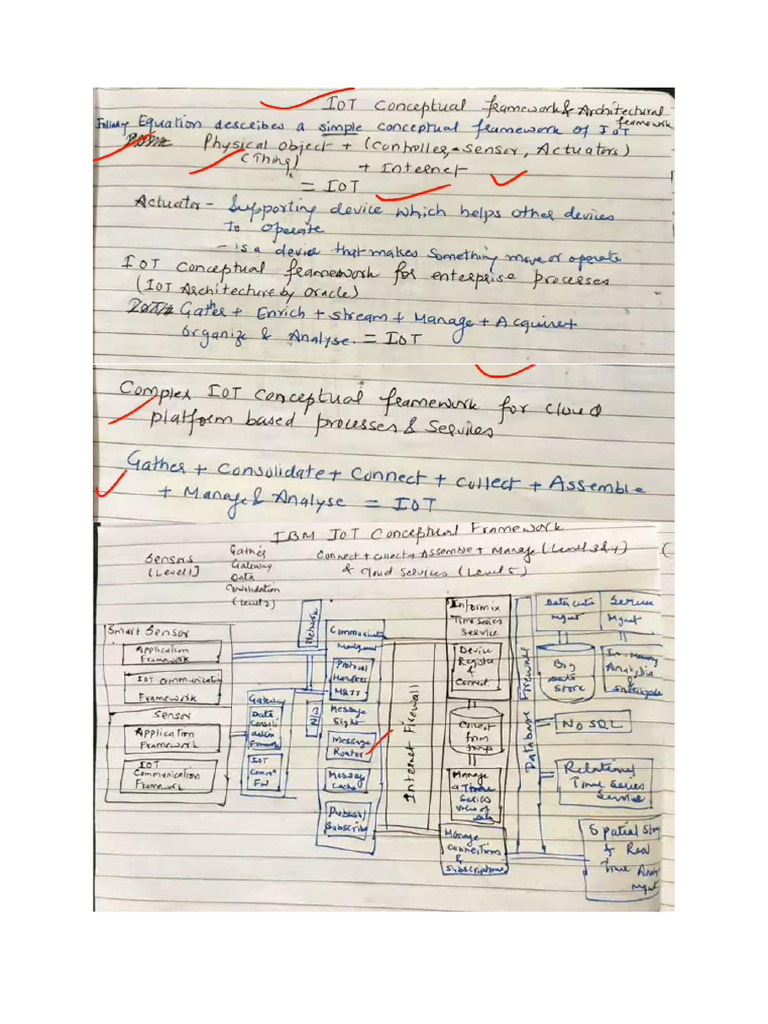 IOT Conceptual framework & Architectural framework
Following Equation describes a simple conceptual framework of IOT
Physical Object + (Controller, Sensor, Actuators)
(Thing) + Internet
= IOT
Actuator - Supporting device which helps other devices
to operate
- is a device that makes something move or operate
IOT Conceptual framework for enterprise processes
(IOT Architecture by Oracle)
Gather + Enrich + Stream + Manage + Acquire +
Organize & Analyse. = IOT
Complex IOT Conceptual framework for cloud
platform based processes & Services
Gather + Consolidate + Connect + Collect + Assemble
+ Manage & Analyse = IOT
IBM IOT Conceptual Framework
Sensors
(Level 1)
Gather
Gateway
Data
Consolidation
(Level 2)
Connect + Collect + Assemble + Manage (Level 3 & 4)
& Cloud Services (Level 5)
Smart Sensor
Application
Framework
IOT Communication
Framework
Sensor
Application
Framework
IOT
Communication
Framework
Gateway
Data
Consoli
dation
Framework
IOT
Comm
FW
Network
Communication
Managment
Protocol
Handlers
MQTT
Message
Sight
Message
Router
Message
Cache
Publish/
Subscribe
Internet Firewall
Informix
Time Series
Service
Device
Register
&
Connect
Collect
from
things
Manage
a Time
Series
View of
Data
Manage
Connections
&
Subscriptions
Database Firewall
Data Cntr
Mgmt
Server
Mgmt
Big
Data
Store
In-Memory
Analytics
&
NO SQL
Relational
Time Series
Service
Spatial
& Real
Time
mgmt